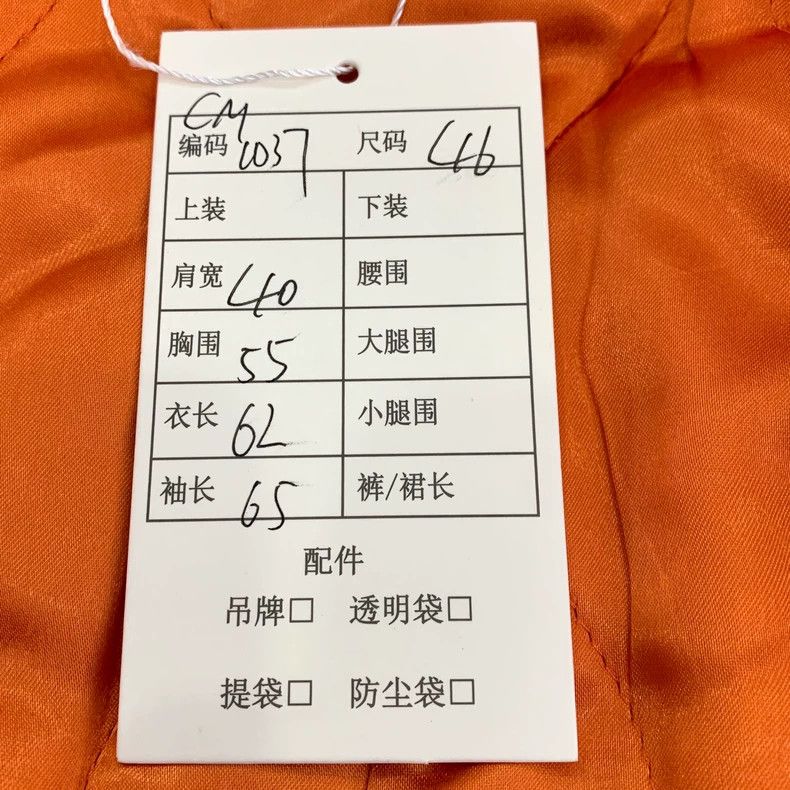 CM
编码 1037 尺码 46
上装 下装
肩宽 40 腰围
胸围 55 大腿围
衣长 62 小腿围
袖长 65 裤/裙长
配件
吊牌□ 透明袋□
提袋□ 防尘袋□